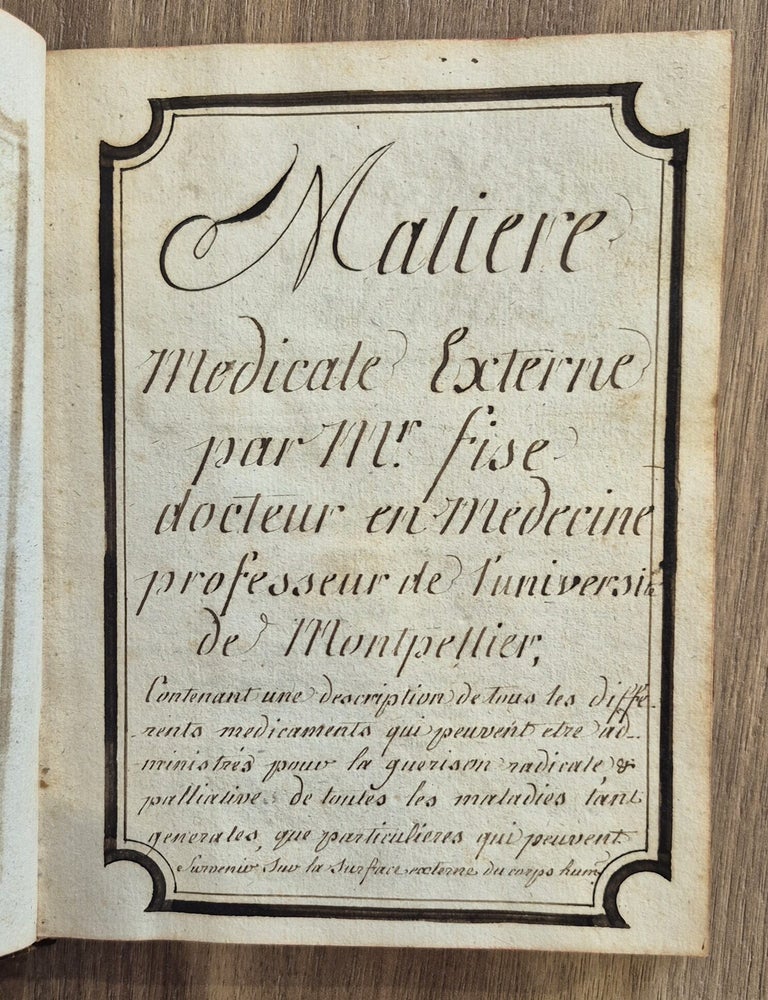 Matiere
Medicale Externe
par Mr. fise
docteur en Medecine
professeur de l'université
de Montpellier,
Contenant une description de tous les diffe-
-rents medicaments qui peuvent etre ad-
-ministrés pour la guerison radicale &
palliative de toutes les maladies tant
generales, que particulieres qui peuvent
Survenir Sur la Surface externe du corps hum.